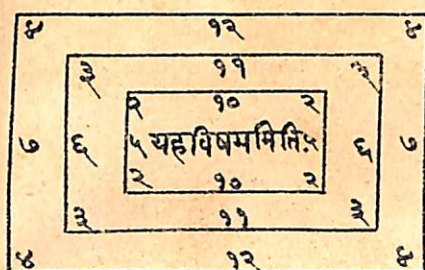 ४ १२ ४
३ ११ ३
२ १० २
७ ६ ५ यहविषममिति: ५ ६ ७
२ १० २
३ ११ ३
४ १२ ४